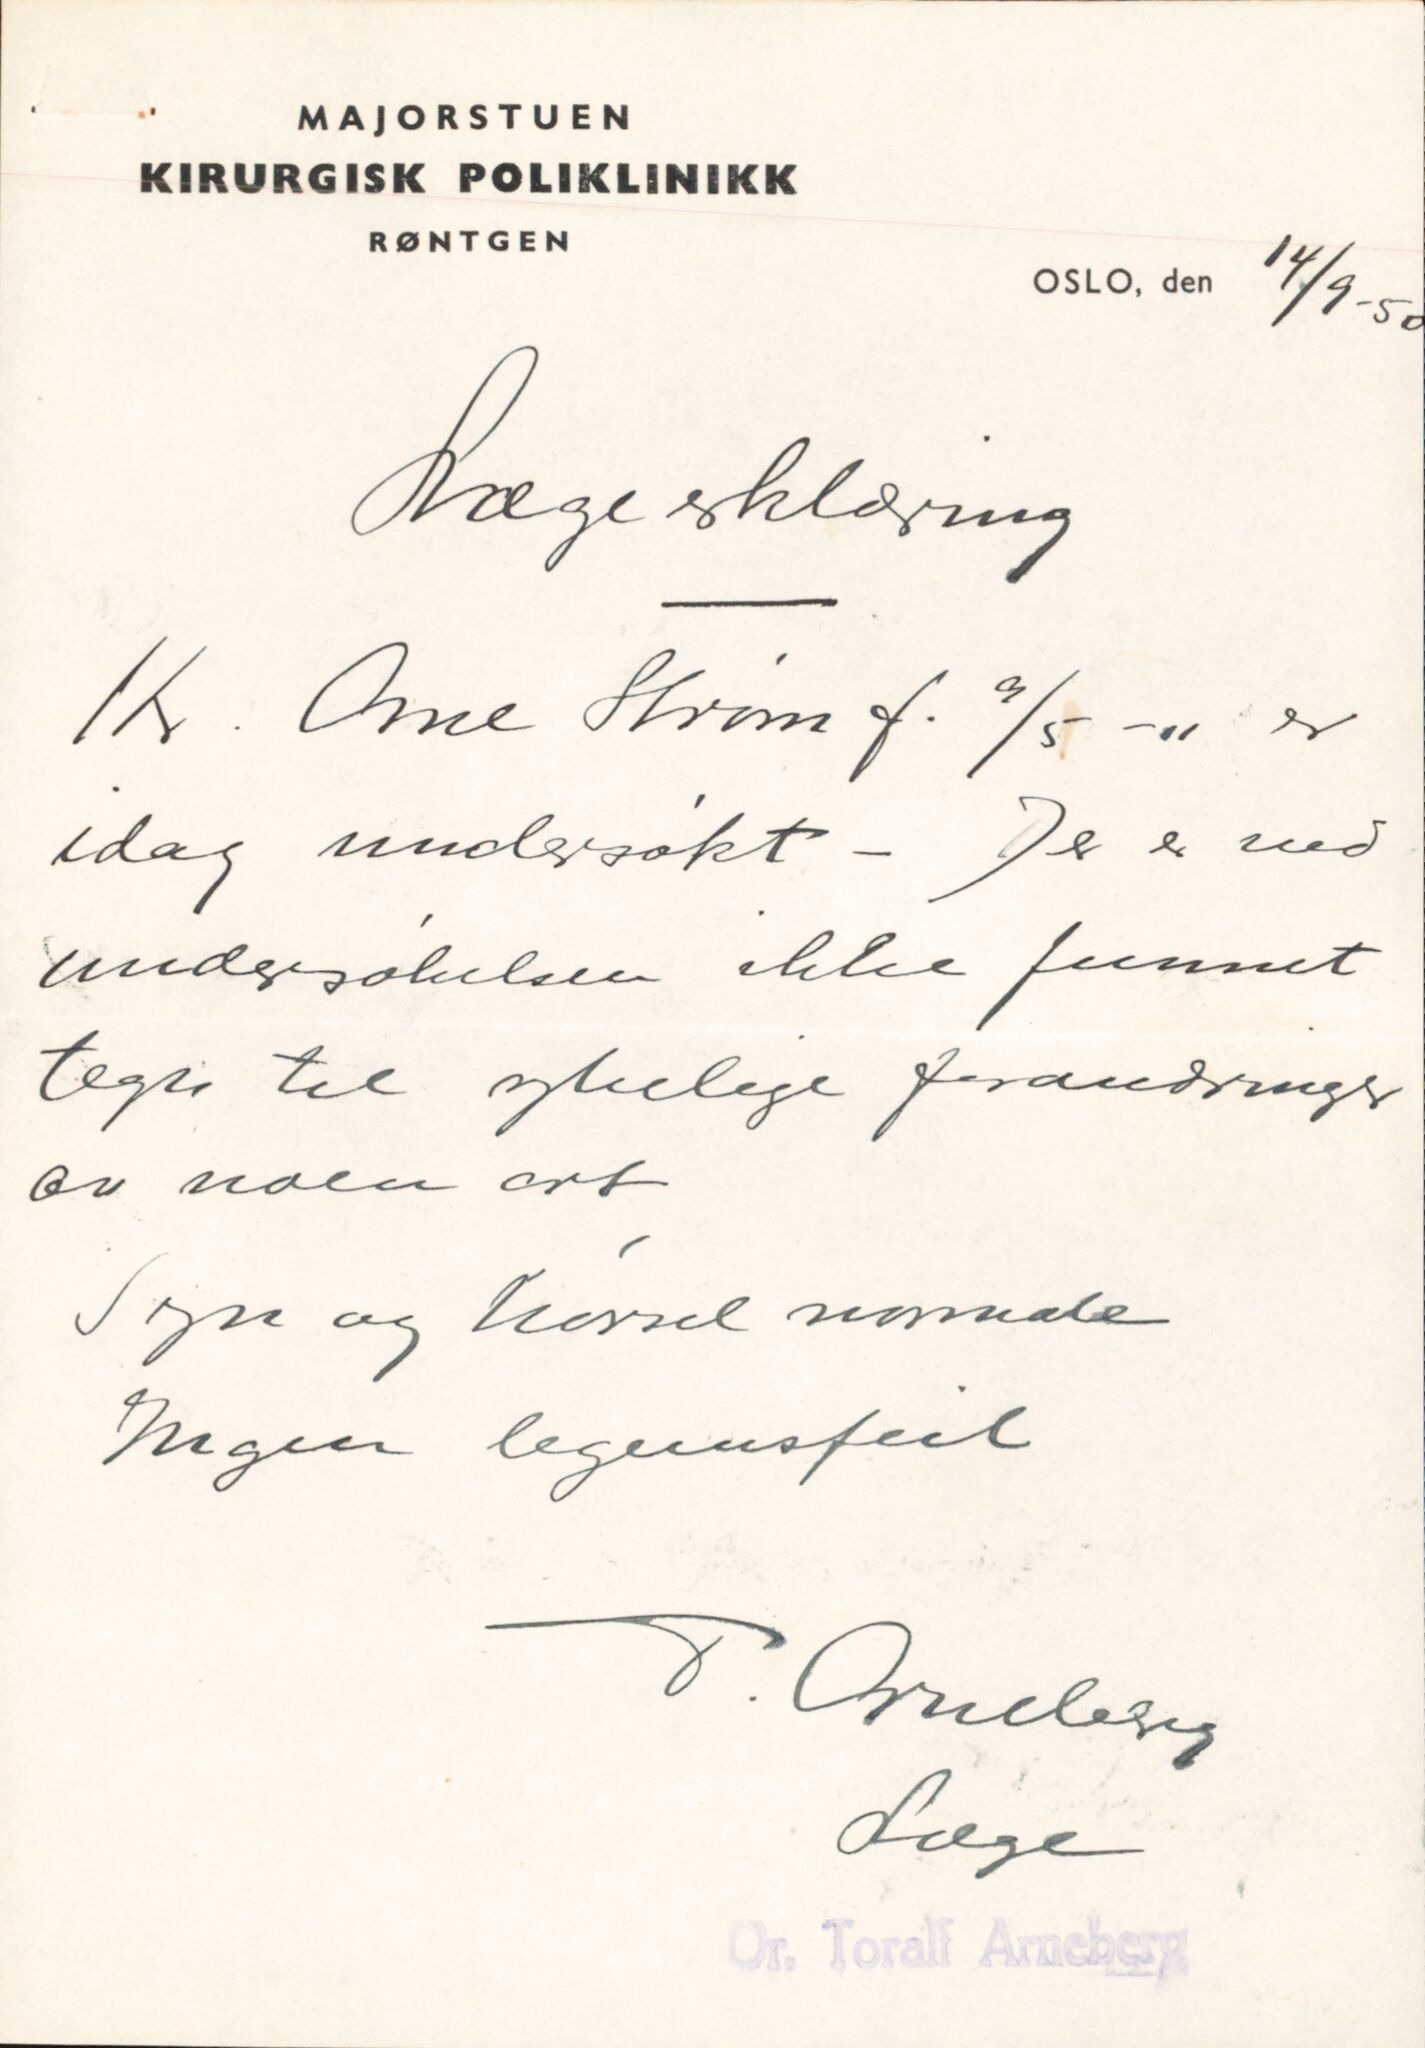 MAJORSTUEN
KIRURGISK POLIKLINIKK
RØNTGEN
OSLO, den 14/9-50
Lægeerklæring
Hr. Arne Strøm f. 9/5 -11 er
idag undersøkt - Der er ved
undersøkelsen ikke funnet
tegn til sykelige forandringer
av noen art
Syn og hørsel normale
Ingen legemsfeil
T. Arneberg
Læge
Dr. Toralf Arneberg